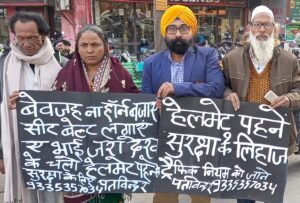 बेवजह ना हॉर्न बजाए
सीट बेल्ट लगाएं
ए भाई जरा देख
के चलो हेलमेट पहने
सुरक्षा के लिए
9335357034
हेलमेट पहने
सुरक्षा के लिहाज
ट्रैफिक नियम को जाने
9335357034